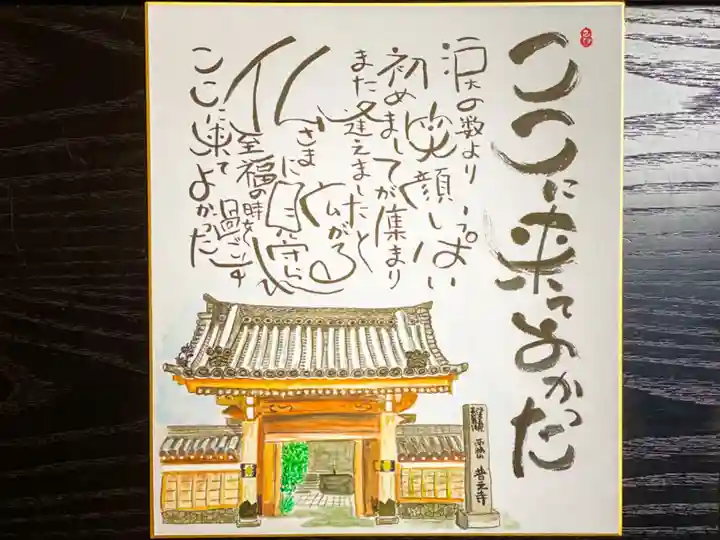 ここに来てよかった
涙の数より
笑顔いっぱい
初めましてが集まり
また逢えましたと
仏さまに見守られ
至福の時を過ごす
ここに来てよかった
普元寺